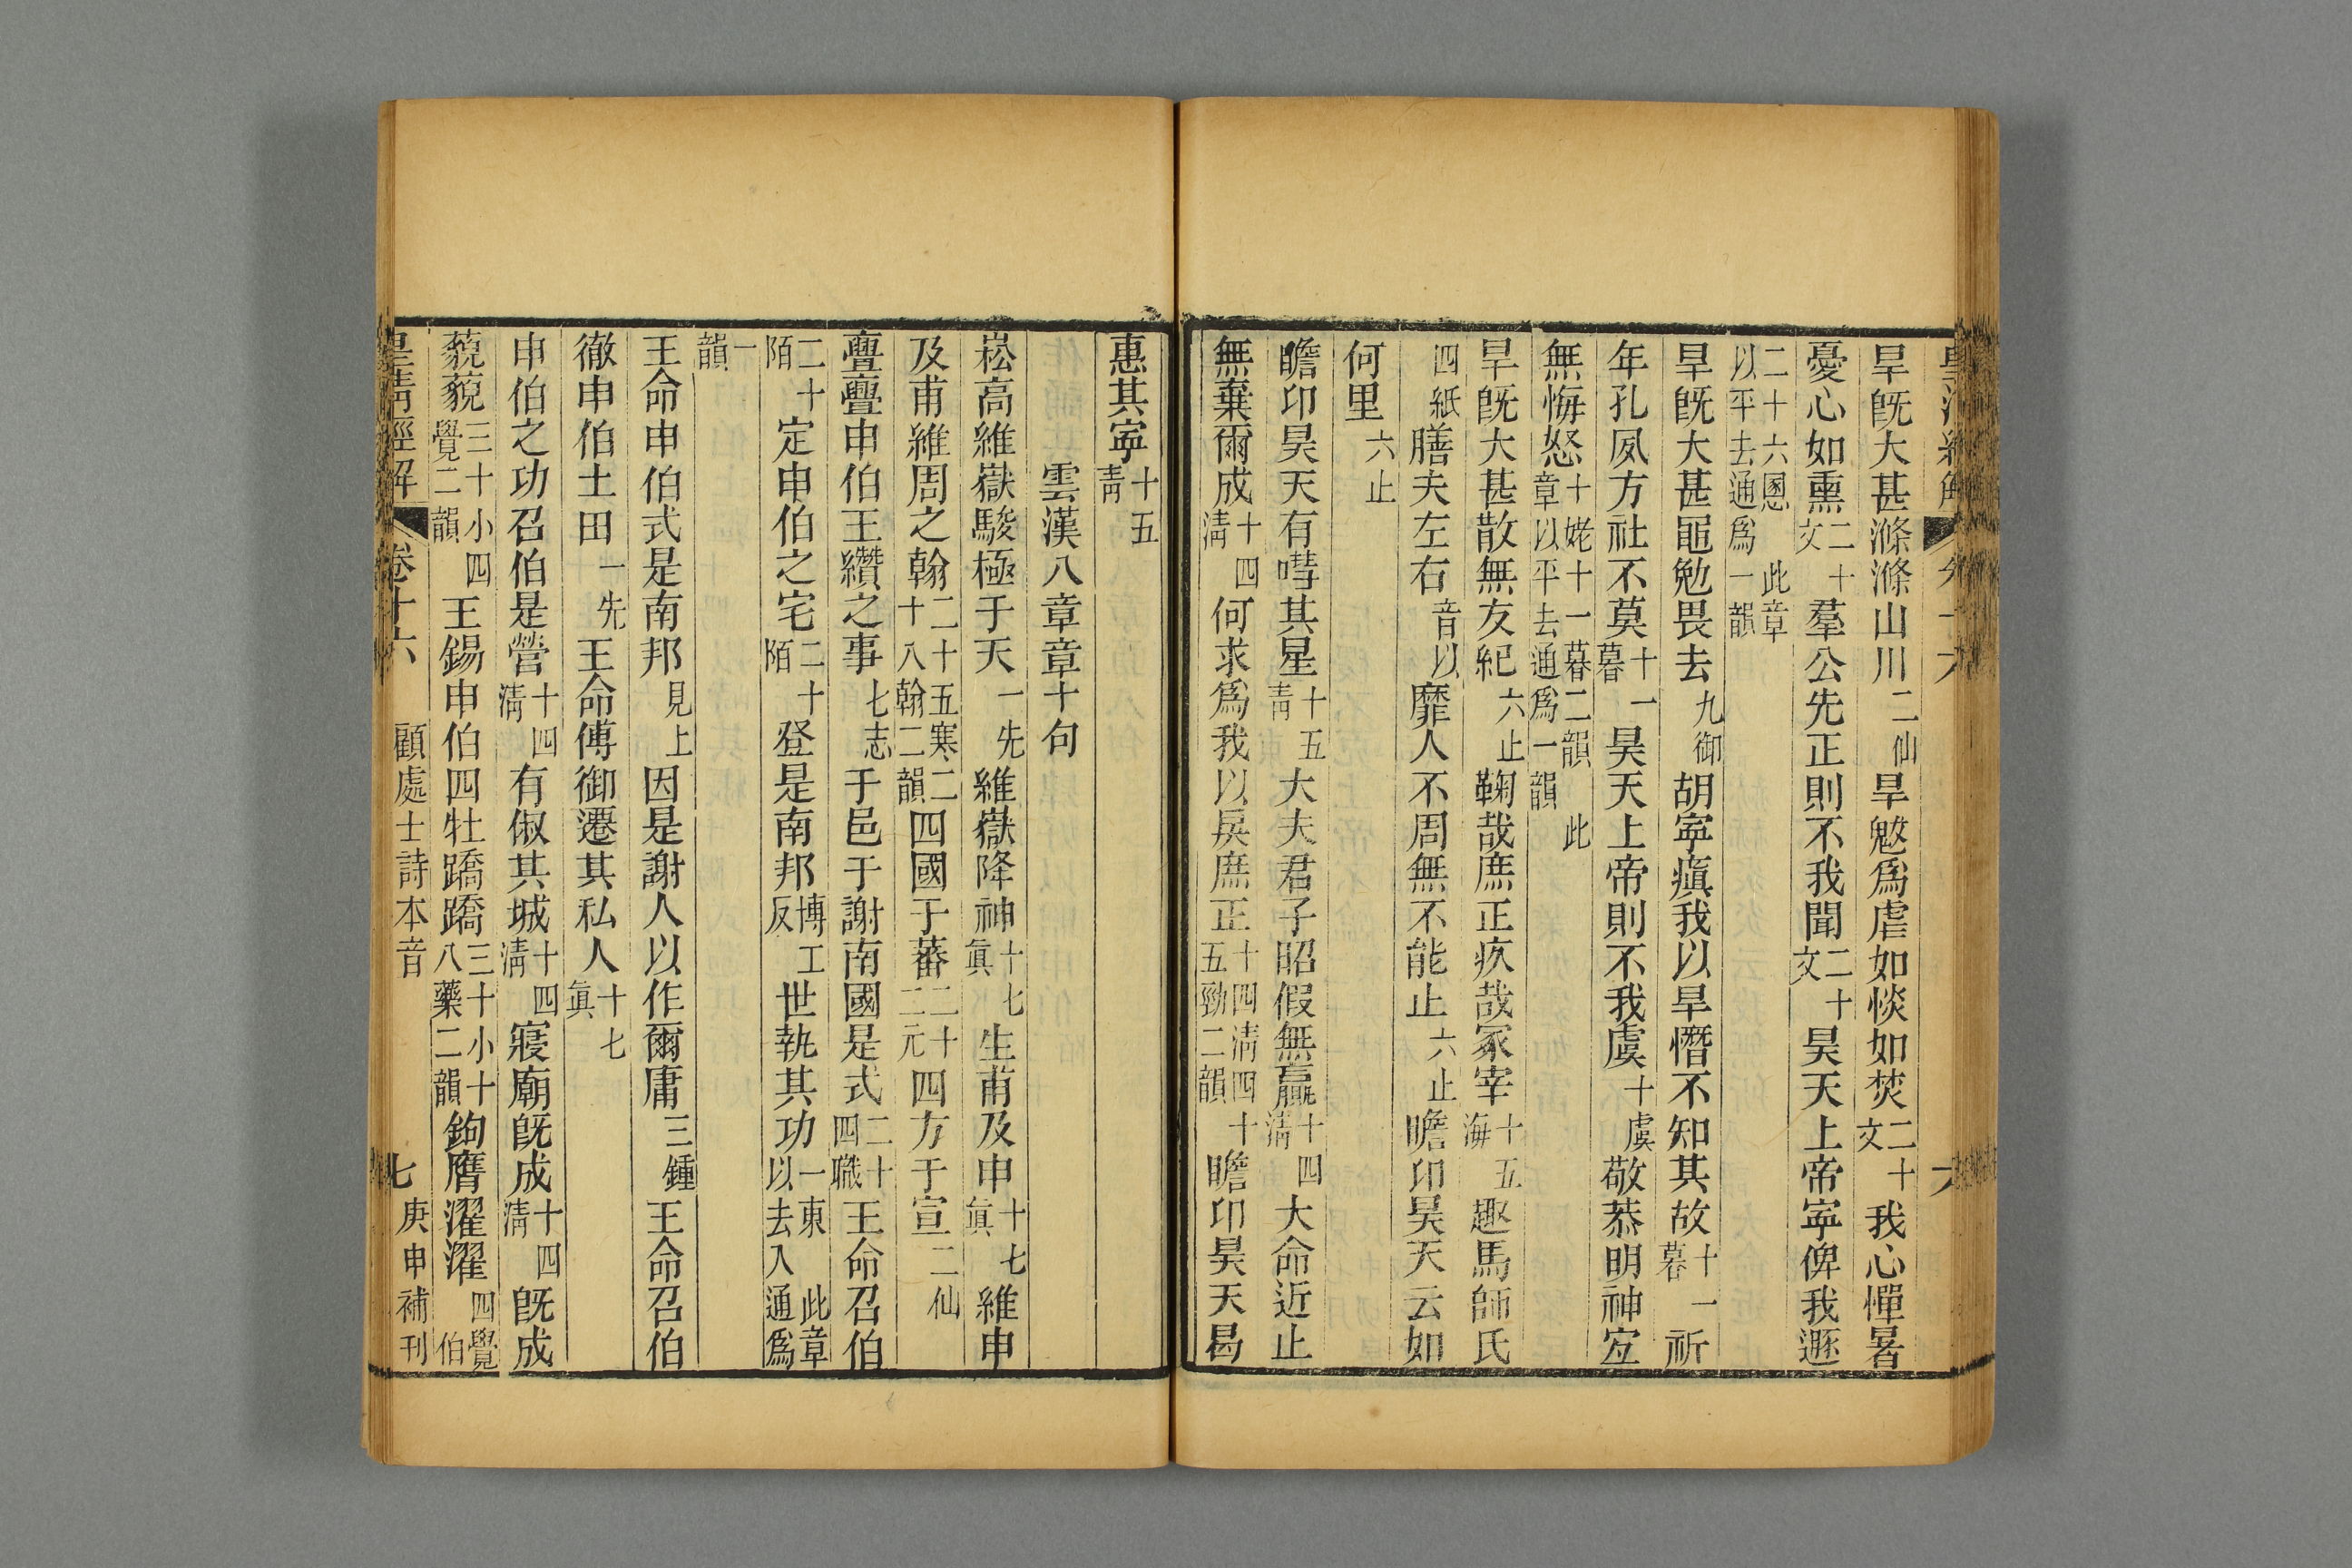 旱旣大甚滌滌山川二仙旱魃爲虐如惔如焚二十文我心憚暑
憂心如熏二十文羣公先正則不我聞二十文昊天上帝寧俾我遯
二十六慁此章以平去通爲一韻
旱旣大甚黽勉畏去九御胡寧瘨我以旱憯不知其故十一暮祈
年孔夙方社不莫十一暮昊天上帝則不我虞十虞敬恭明神宜
無悔怒十姥十一暮二韻此章以平去通爲一韻
旱旣大甚散無友紀六止鞫哉庶正疚哉冢宰十五海趣馬師氏
四紙膳夫左右音以靡人不周無不能止六止瞻卬昊天云如
何里六止
瞻卬昊天有嘒其星十五靑大夫君子昭假無贏十四淸大命近止
無棄爾成十四淸何求爲我以戾庶正十四淸四十五勁二韻瞻卬昊天曷
惠其寧十五靑
雲漢八章章十句
崧高維嶽駿極于天一先維嶽降神十七眞生甫及申十七眞維申
及甫維周之翰二十五寒二十八翰二韻四國于蕃二十二元四方于宣二仙
亹亹申伯王纘之事七志于邑于謝南國是式二十四職王命召伯
二十陌定申伯之宅二十陌登是南邦博工反世執其功一東此章以去入通爲
一韻
王命申伯式是南邦見上因是謝人以作爾庸三鍾王命召伯
徹申伯土田一先王命傅御遷其私人十七眞
申伯之功召伯是營十四淸有俶其城十四淸寢廟旣成十四淸旣成
藐藐三十小四覺二韻王錫申伯四牡蹻蹻三十小十八藥二韻鉤膺濯濯四覺伯
皇淸經解 卷十六 顧處士詩本音 七 庚申補刊